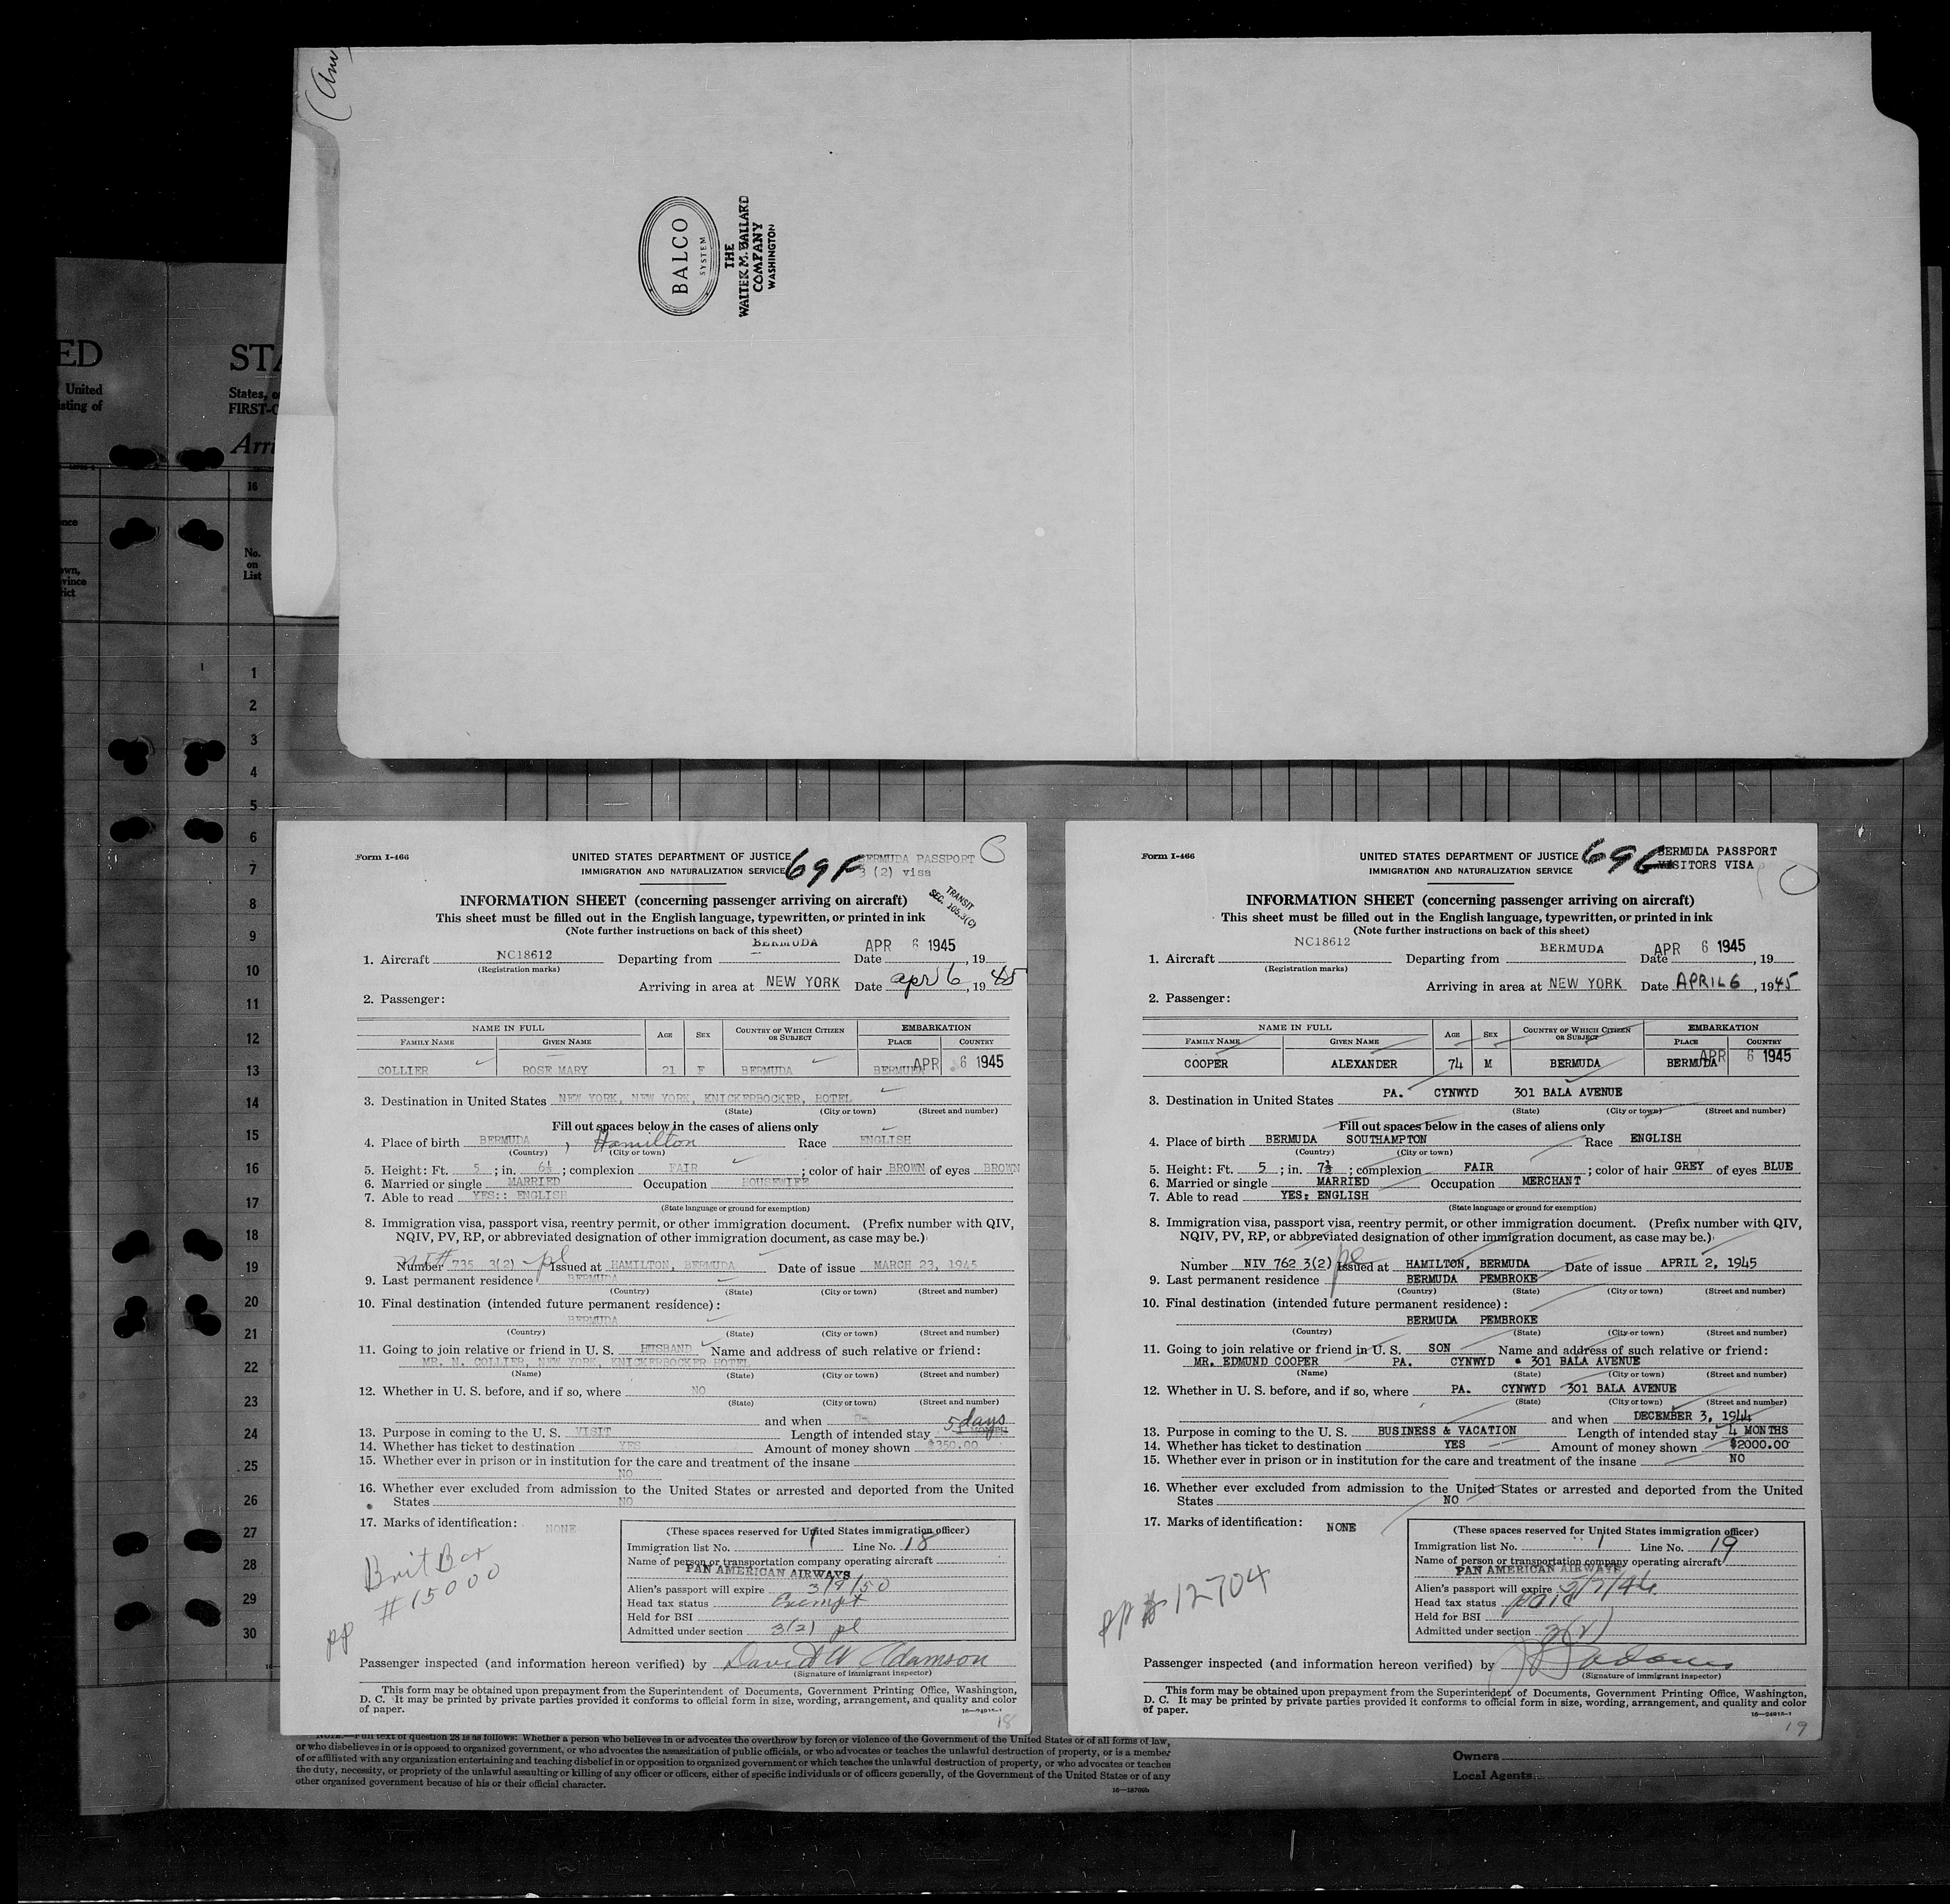 (Am
BALCO
SYSTEM
THE
WALTER M. BALLARD
COMPANY
WASHINGTON
ED
United
isting of
STA
States, o
FIRST-C
Arri
16
nce
own,
vince
rict
No.
on
List
1
2
3
4
5
6
7
8
9
10
11
12
13
14
15
16
17
18
19
20
21
22
23
24
25
26
27
28
29
30
Form I-466
UNITED STATES DEPARTMENT OF JUSTICE
IMMIGRATION AND NATURALIZATION SERVICE
69F
BERMUDA PASSPORT
3 (2) visa
TRANSIT
SEC. 105.3(C)
INFORMATION SHEET (concerning passenger arriving on aircraft)
This sheet must be filled out in the English language, typewritten, or printed in ink
(Note further instructions on back of this sheet)
1. Aircraft NC18612 Departing from BERMUDA Date APR 6 1945, 19
(Registration marks)
Arriving in area at NEW YORK Date apr 6, 1945
2. Passenger:
NAME IN FULL AGE SEX COUNTRY OF WHICH CITIZEN OR SUBJECT EMBARKATION
FAMILY NAME GIVEN NAME PLACE COUNTRY
COLLIER ROSE MARY 21 F BERMUDA BERMUDA APR 6 1945
3. Destination in United States NEW YORK, NEW YORK, KNICKERBOCKER, HOTEL
(State) (City or town) (Street and number)
Fill out spaces below in the cases of aliens only
4. Place of birth BERMUDA, Hamilton Race ENGLISH
(Country) (City or town)
5. Height: Ft. 5; in. 6½; complexion FAIR; color of hair BROWN of eyes BROWN
6. Married or single MARRIED Occupation HOUSEWIFE
7. Able to read YES:: ENGLISH
(State language or ground for exemption)
8. Immigration visa, passport visa, reentry permit, or other immigration document. (Prefix number with QIV,
NQIV, PV, RP, or abbreviated designation of other immigration document, as case may be.)
Number 735 3(2) pl Issued at HAMILTON, BERMUDA Date of issue MARCH 23, 1945
9. Last permanent residence BERMUDA
(Country) (State) (City or town) (Street and number)
10. Final destination (intended future permanent residence):
BERMUDA
(Country) (State) (City or town) (Street and number)
11. Going to join relative or friend in U. S. HUSBAND Name and address of such relative or friend:
MR. N. COLLIER, NEW YORK, KNICKERBOCKER HOTEL
(Name) (State) (City or town) (Street and number)
12. Whether in U. S. before, and if so, where NO
(State) (City or town) (Street and number)
and when
13. Purpose in coming to the U. S. VISIT Length of intended stay 5 days
14. Whether has ticket to destination YES Amount of money shown $350.00
15. Whether ever in prison or in institution for the care and treatment of the insane
NO
16. Whether ever excluded from admission to the United States or arrested and deported from the United
States NO
17. Marks of identification: NONE
(These spaces reserved for United States immigration officer)
Immigration list No. 1 Line No. 18
Name of person or transportation company operating aircraft
PAN AMERICAN AIRWAYS
Alien's passport will expire 3/9/50
Head tax status Exempt
Held for BSI
Admitted under section 3(2) pl
Brit Ber
#15000
pp
Passenger inspected (and information hereon verified) by David W Adamson
(Signature of immigrant inspector)
This form may be obtained upon prepayment from the Superintendent of Documents, Government Printing Office, Washington,
D. C. It may be printed by private parties provided it conforms to official form in size, wording, arrangement, and quality and color
of paper.
16—24915-1
18
Form I-466
UNITED STATES DEPARTMENT OF JUSTICE
IMMIGRATION AND NATURALIZATION SERVICE
BERMUDA PASSPORT
VISITORS VISA
INFORMATION SHEET (concerning passenger arriving on aircraft)
This sheet must be filled out in the English language, typewritten, or printed in ink
(Note further instructions on back of this sheet)
1. Aircraft NC18612 Departing from BERMUDA Date APR 6 1945, 19
(Registration marks)
Arriving in area at NEW YORK Date APRIL 6, 1945
2. Passenger:
NAME IN FULL AGE SEX COUNTRY OF WHICH CITIZEN OR SUBJECT EMBARKATION
FAMILY NAME GIVEN NAME PLACE COUNTRY
COOPER ALEXANDER 74 M BERMUDA BERMUDA APR 6 1945
3. Destination in United States PA. CYNWYD 301 BALA AVENUE
(State) (City or town) (Street and number)
Fill out spaces below in the cases of aliens only
4. Place of birth BERMUDA SOUTHAMPTON Race ENGLISH
(Country) (City or town)
5. Height: Ft. 5; in. 7½; complexion FAIR; color of hair GREY of eyes BLUE
6. Married or single MARRIED Occupation MERCHANT
7. Able to read YES: ENGLISH
(State language or ground for exemption)
8. Immigration visa, passport visa, reentry permit, or other immigration document. (Prefix number with QIV,
NQIV, PV, RP, or abbreviated designation of other immigration document, as case may be.)
Number NIV 762 3(2) Issued at HAMILTON, BERMUDA Date of issue APRIL 2, 1945
9. Last permanent residence BERMUDA PEMBROKE
(Country) (State) (City or town) (Street and number)
10. Final destination (intended future permanent residence):
BERMUDA PEMBROKE
(Country) (State) (City or town) (Street and number)
11. Going to join relative or friend in U. S. SON Name and address of such relative or friend:
MR. EDMUND COOPER PA. CYNWYD 301 BALA AVENUE
(Name) (State) (City or town) (Street and number)
12. Whether in U. S. before, and if so, where PA. CYNWYD 301 BALA AVENUE
(State) (City or town) (Street and number)
and when DECEMBER 3, 1944
13. Purpose in coming to the U. S. BUSINESS & VACATION Length of intended stay 4 MONTHS
14. Whether has ticket to destination YES Amount of money shown $2000.00
15. Whether ever in prison or in institution for the care and treatment of the insane NO
16. Whether ever excluded from admission to the United States or arrested and deported from the United
States NO
17. Marks of identification: NONE
(These spaces reserved for United States immigration officer)
Immigration list No. 1 Line No. 19
Name of person or transportation company operating aircraft
PAN AMERICAN AIRWAYS
Alien's passport will expire 2/7/46
Head tax status paid
Held for BSI
Admitted under section 3(2)
pp # 12704
Passenger inspected (and information hereon verified) by
(Signature of immigrant inspector)
This form may be obtained upon prepayment from the Superintendent of Documents, Government Printing Office, Washington,
D. C. It may be printed by private parties provided it conforms to official form in size, wording, arrangement, and quality and color
of paper.
16—24915-1
19
NOTE.—Full text of question 28 is as follows: Whether a person who believes in or advocates the overthrow by force or violence of the Government of the United States or of all forms of law,
or who disbelieves in or is opposed to organized government, or who advocates the assassination of public officials, or who advocates or teaches the unlawful destruction of property, or is a member
of or affiliated with any organization entertaining and teaching disbelief in or opposition to organized government or which teaches the unlawful destruction of property, or who advocates or teaches
the duty, necessity, or propriety of the unlawful assaulting or killing of any officer or officers, either of specific individuals or of officers generally, of the Government of the United States or of any
other organized government because of his or their official character.
16—18709b
Owners
Local Agents